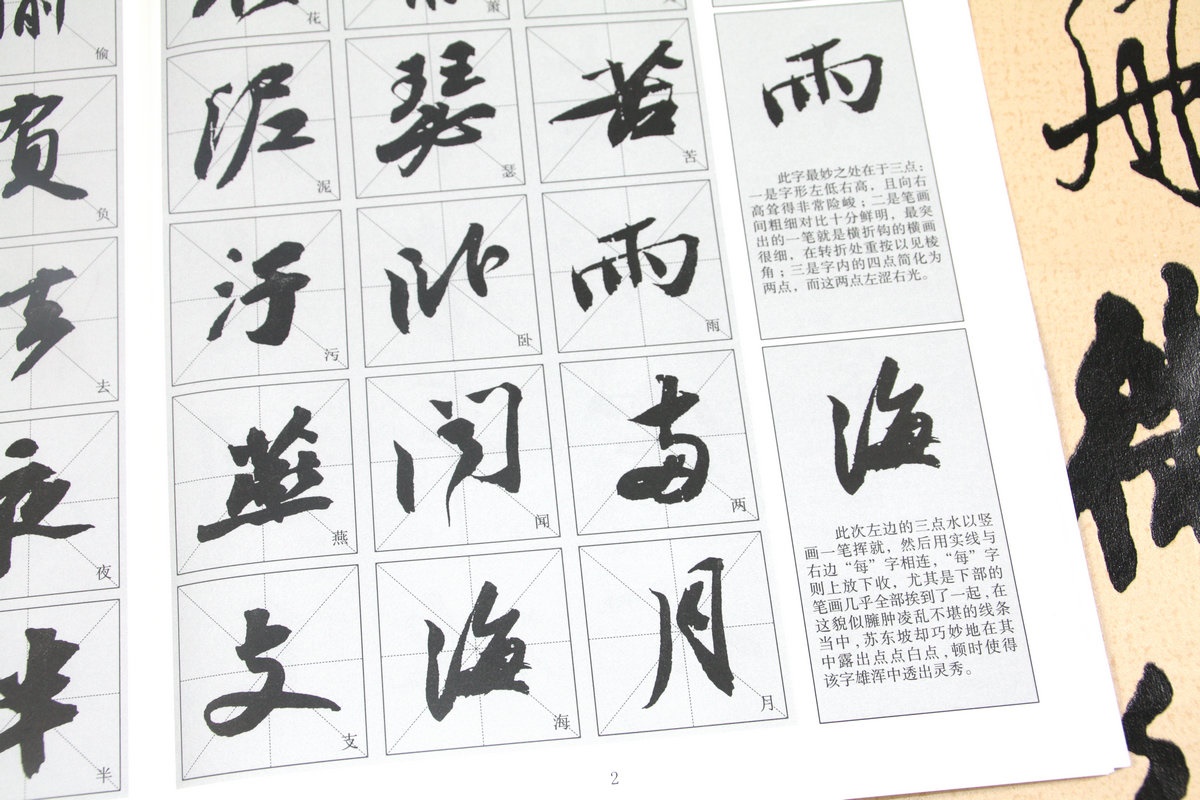 雨
此字最妙之处在于三点:
一是字形左低右高，且向右
高耸得非常险峻；二是笔画
间粗细对比十分鲜明，最突
出的一笔就是横折钩的横画
很细，在转折处重按以见棱
角；三是字内的四点简化为
两点，而这两点左涩右光。
海
此次左边的三点水以竖
画一笔挥就，然后用实线与
右边“每”字相连，“每”字
则上放下收，尤其是下部的
笔画几乎全部挨到了一起，在
这貌似臃肿凌乱不堪的线条
当中，苏东坡却巧妙地在其
中露出点点白点，顿时使得
该字雄浑中透出灵秀。
苦
苦
雨
雨
两
两
月
月
萧
瑟
瑟
卧
卧
闻
闻
海
海
花
泥
泥
污
污
燕
燕
支
支
偷
偷
负
负
去
去
夜
夜
半
半
2